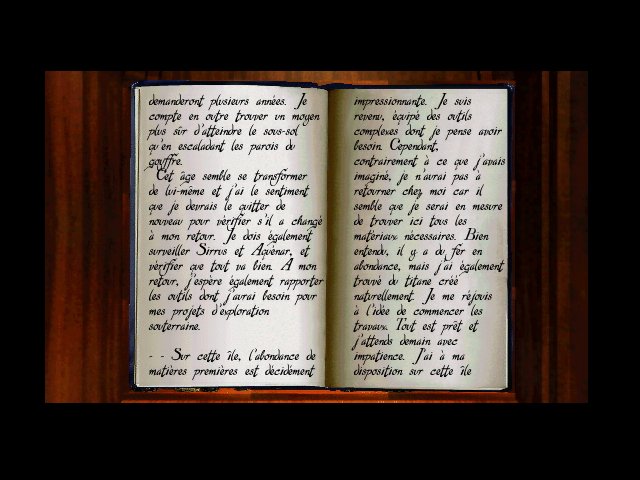 demanderont plusieurs années. Je
compte en outre trouver un moyen
plus sûr d'atteindre le sous-sol
qu'en escaladant les parois du
gouffre.
Cet âge semble se transformer
de lui-même et j'ai le sentiment
que je devrais le quitter de
nouveau pour vérifier s'il a changé
à mon retour. Je dois également
surveiller Sirrus et Aquenar, et
vérifier que tout va bien. A mon
retour, j'espère également rapporter
les outils dont j'aurai besoin pour
mes projets d'exploration
souterraine.
- - Sur cette île, l'abondance de
matières premières est décidément
impressionnante. Je suis
revenu, équipé des outils
complexes dont je pense avoir
besoin. Cependant,
contrairement à ce que j'avais
imaginé, je n'aurai pas à
retourner chez moi car il
semble que je serai en mesure
de trouver ici tous les
matériaux nécessaires. Bien
entendu, il y a du fer en
abondance, mais j'ai également
trouvé du titane créé
naturellement. Je me réjouis
à l'idée de commencer les
travaux. Tout est prêt et
j'attends demain avec
impatience. J'ai à ma
disposition sur cette île